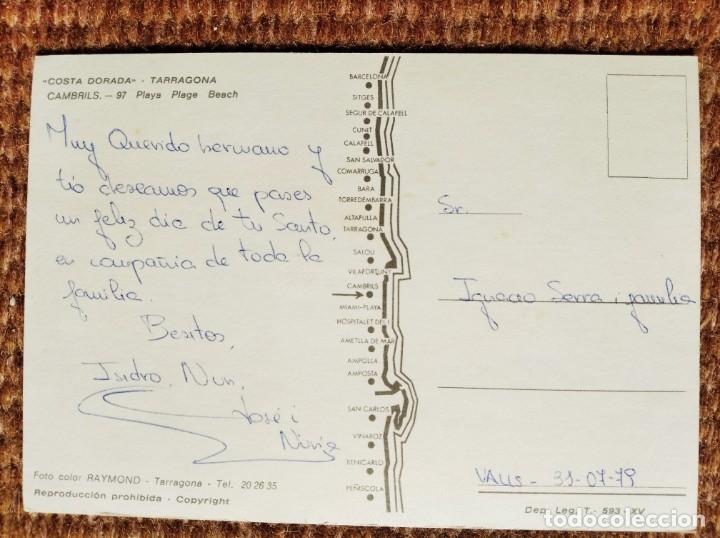 "COSTA DORADA" - TARRAGONA
CAMBRILS. - 97 Playa Plage Beach
Muy Querido hermano y
tio deseamos que pases
un feliz dia de tu Santo,
en compañia de toda la
familia.
Besitos,
Isidro, Nuri,
José i
Foto color RAYMOND - Tarragona - Tel. 20 26 35
Reproducción prohibida - Copyright
BARCELONA
SITGES
SEGUR DE CALAFELL
CUNIT
CALAFELL
SAN SALVADOR
COMARRUGA
BARA
TORREDEMBARRA
ALTAFULLA
TARRAGONA
SALOU
VILAFORTUNY
CAMBRILS
MIAMI-PLAYA
HOSPITALET DEL I.
AMETLLA DE MAR
AMPOLLA
AMPOSTA
SAN CARLOS
VINAROZ
BENICARLO
PEÑISCOLA
Sr.
Ignacio Serra i familia
VALLS - 31-07-79
Dep. Leg. T. - 593 - XV
todocoleccion